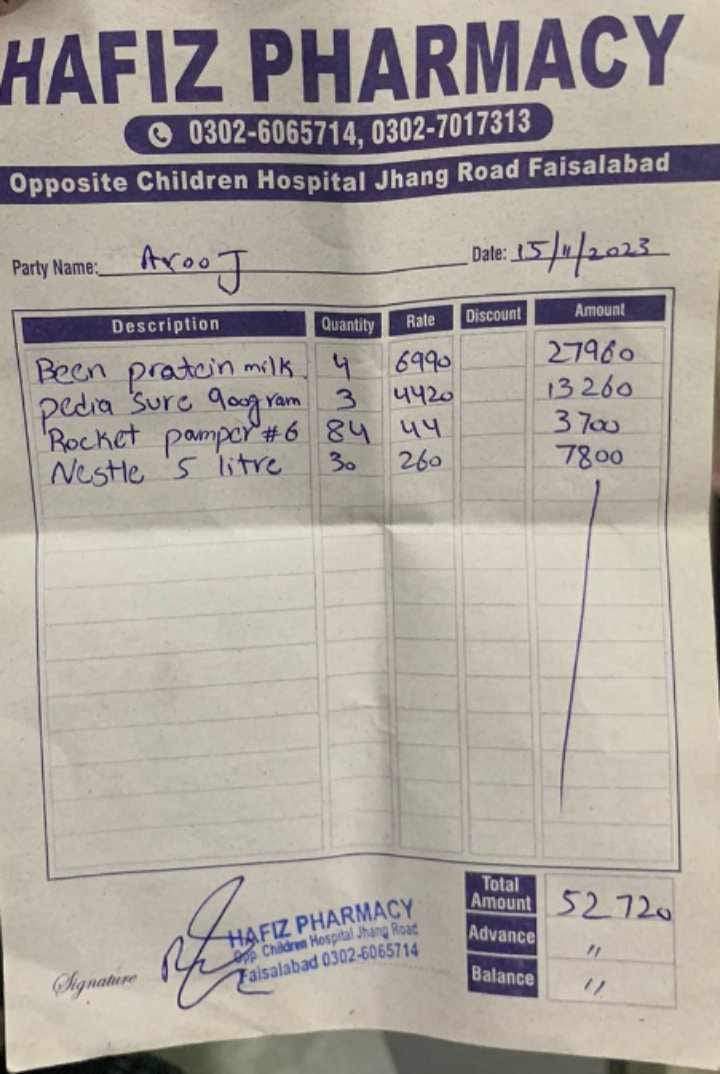 HAFIZ PHARMACY
0302-6065714, 0302-7017313
Opposite Children Hospital Jhang Road Faisalabad
Party Name: Arooj Date: 15/11/2023
Description Quantity Rate Discount Amount
Been protein milk 4 6990 27960
pedia sure 900gram 3 4420 13260
Rocket pamper #6 84 44 3700
Nestle 5 litre 30 260 7800
Total Amount 52720
Advance "
Balance "
HAFIZ PHARMACY
Opp. Children Hospital Jhang Road
Faisalabad 0302-6065714
Signature